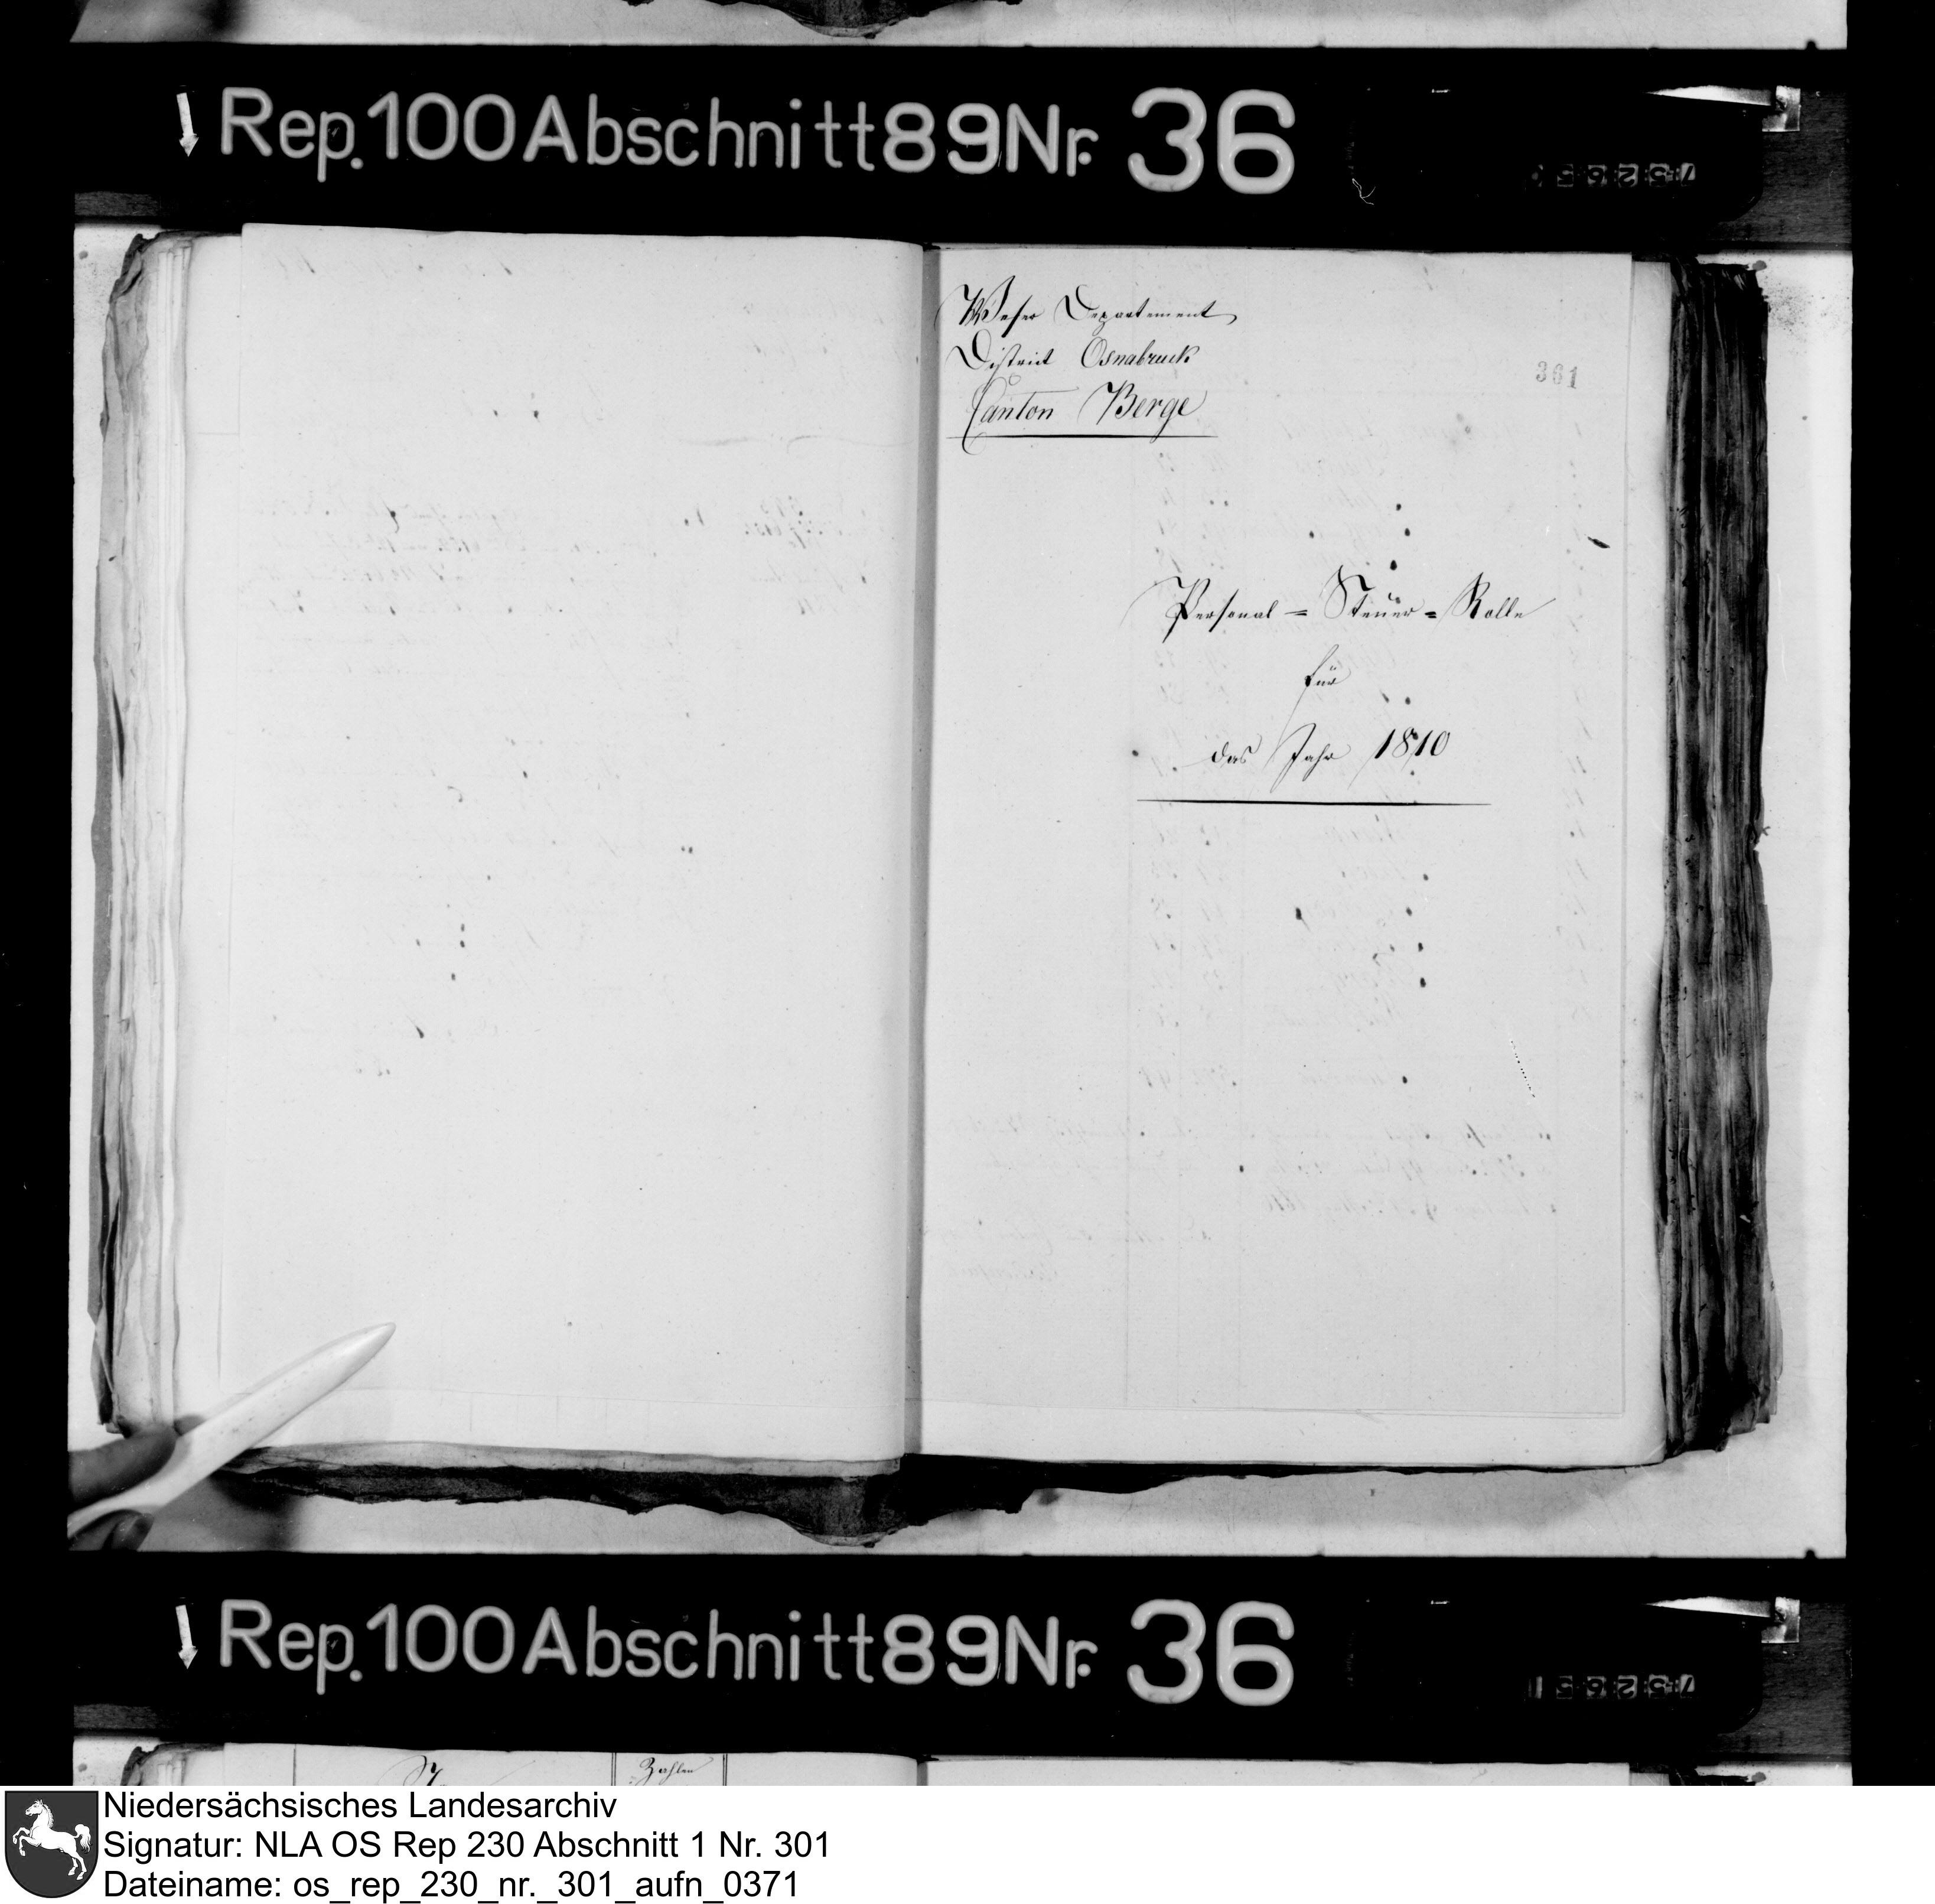 Rep. 100 Abschnitt 89 Nr. 36
Weser Departement
District Osnabruck
Canton Berge
361
Personal = Steuer = Rolle
für
das Jahr 1810
Rep. 100 Abschnitt 89 Nr. 36
Zahlen
Niedersächsisches Landesarchiv
Signatur: NLA OS Rep 230 Abschnitt 1 Nr. 301
Dateiname: os_rep_230_nr._301_aufn_0371